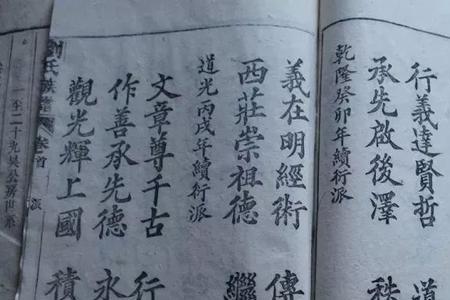 行義達賢哲 道
承先啟後澤 秩
乾隆癸卯年續行派
義在明經術 傳
西莊崇祖德 繼
道光丙戌年續行派
文章尊千古 行
作善承先德 永
觀光輝上國 積
劉氏族譜 卷首 派
一至二十九吳公房世系